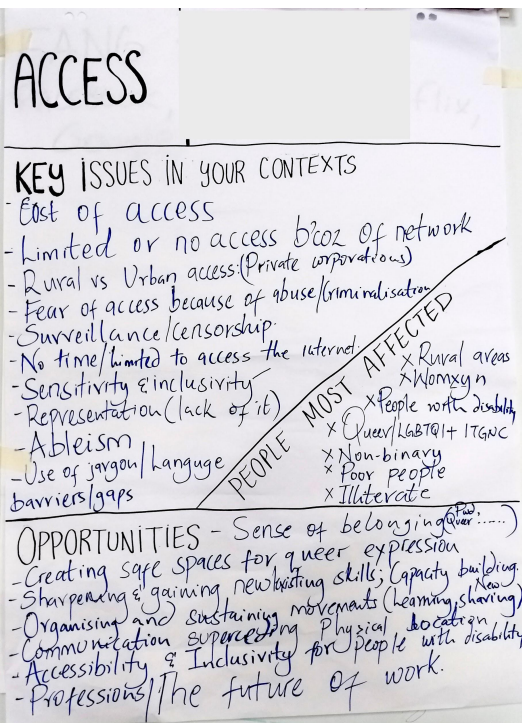 ACCESS
KEY ISSUES IN YOUR CONTEXTS
- Cost of access
- Limited or no access b'coz of network
- Rural vs Urban access:(Private corporations)
- Fear of access because of abuse/Criminalisation
- Surveillance/censorship.
- No time/limited to access the internet.
- Sensitivity & inclusivity
- Representation (lack of it)
- Ableism
- Use of jargon/Languge
barriers/gaps
PEOPLE MOST AFFECTED
x Rural areas
x Womxyn
x People with disability
x Queer/LGBTQI+ ITGNC
x Non-binary
x Poor people
x Illiterate
OPPORTUNITIES - Sense of belonging (Pwd, Queer......)
- Creating safe spaces for queer expression
- Sharpening & gaining new/existing skills; Capacity building.
- Organising and sustaining movements (Learning, New sharing)
- Communication superceding Physical location
- Accessibility & Inclusivity for people with disability
- Professions/The future of work.